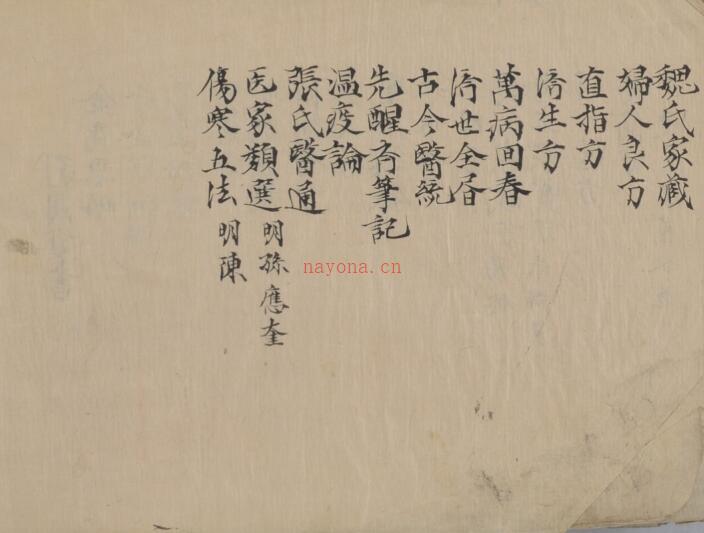 魏氏家藏
婦人良方
直指方
済生方
萬病回春
済世全书
古今醫統
先醒斎筆記
温疫論
張氏醫通
医家類選 明孫應奎
傷寒五法 明陳
nayona.cn